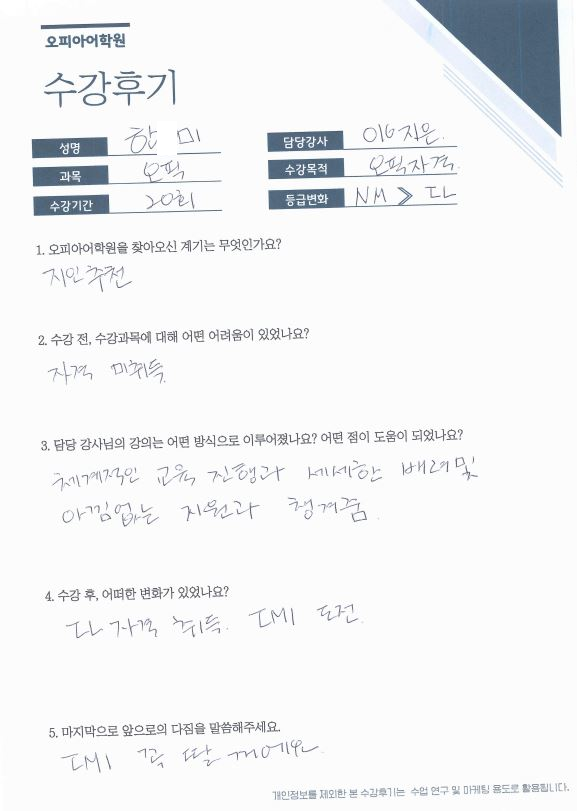 오피아어학원
수강후기
성명 한 미 담당강사 이지은.
과목 오픽 수강목적 오픽자격.
수강기간 20회 등급변화 NM > IL
1. 오피아어학원을 찾아오신 계기는 무엇인가요?
지인추천
2. 수강 전, 수강과목에 대해 어떤 어려움이 있었나요?
자격 미취득.
3. 담당 강사님의 강의는 어떤 방식으로 이루어졌나요? 어떤 점이 도움이 되었나요?
체계적인 교육 진행과 세세한 배려 및
아낌없는 지원과 챙겨줌.
4. 수강 후, 어떠한 변화가 있었나요?
IL 자격 취득. IM1 도전.
5. 마지막으로 앞으로의 다짐을 말씀해주세요.
IM1 꼭 딸 거에요.
개인정보를 제외한 본 수강후기는 수업 연구 및 마케팅 용도로 활용됩니다.